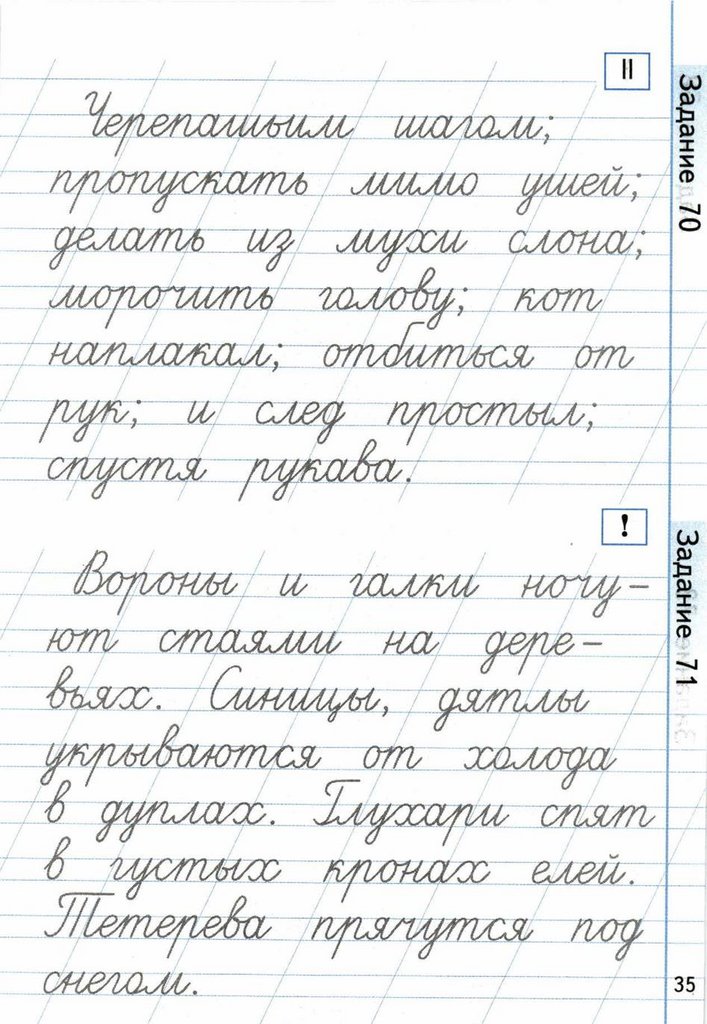 ||
Задание 70
Черепашьим шагом;
пропускать мимо ушей;
делать из мухи слона;
морочить голову; кот
наплакал; отбиться от
рук; и след простыл;
спустя рукава.
!
Задание 71
Вороны и галки ночу-
ют стаями на дере-
вьях. Синицы, дятлы
укрываются от холода
в дуплах. Глухари спят
в густых кронах елей.
Тетерева прячутся под
снегом.
35